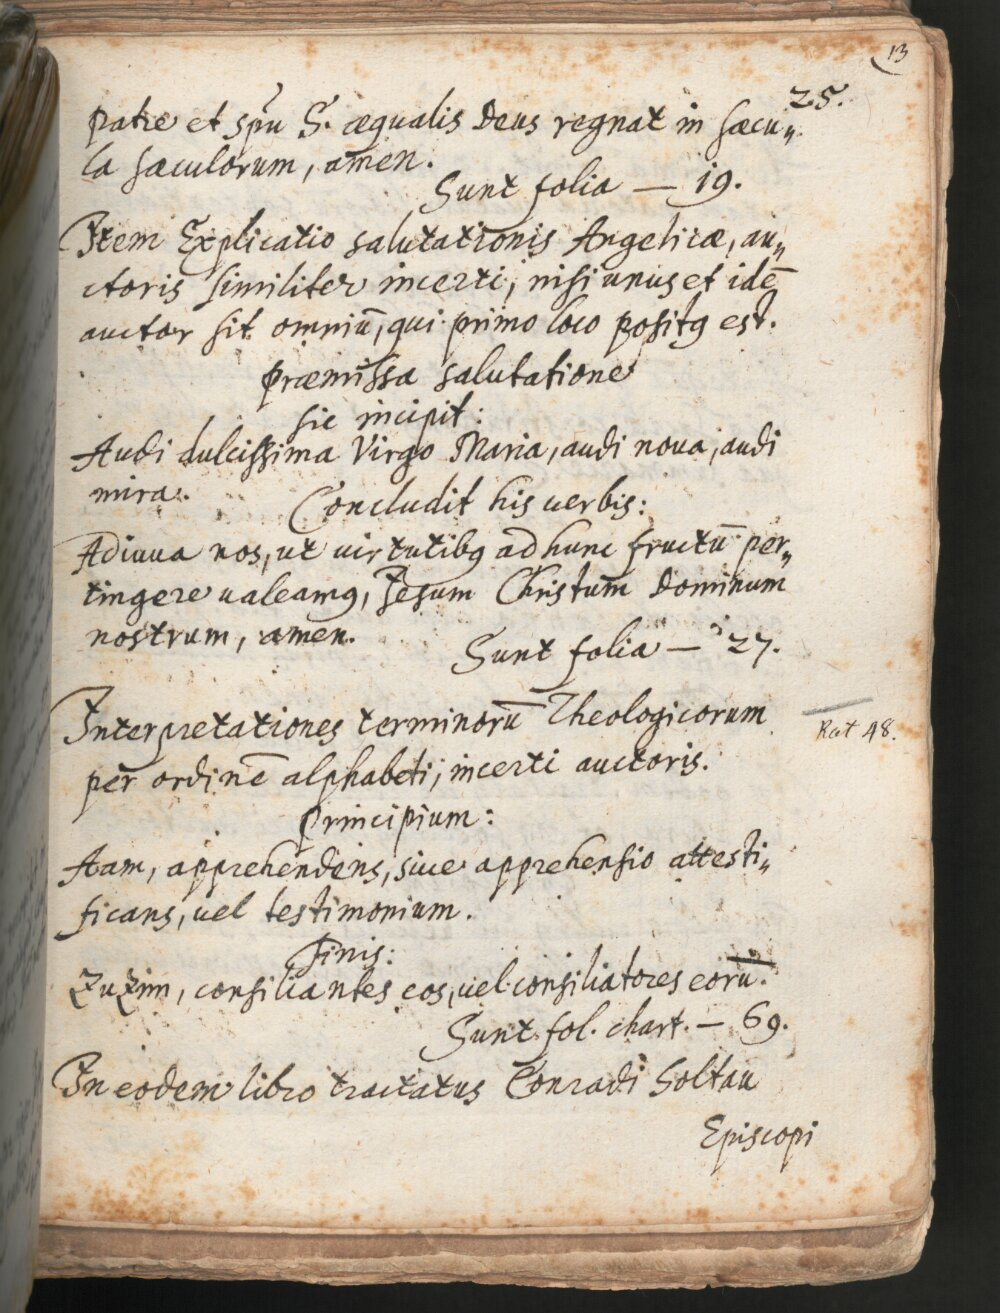 13
25.
patre et spu S. æqualis Deus regnat in sæcu„
la sæculorum, amen.
Sunt folia — 19.
Item Explicatio salutationis Angelicæ, au„
ctoris similiter incerti, nisi unus et idē
auctor sit omniū, qui primo loco positꝰ est.
præmissa salutatione
sic incipit:
Audi dulcissima Virgo Maria, audi noua, audi
mira.
Concludit his uerbis:
Adiuua nos, ut uirtutibꝰ ad hunc fructū per„
tingere ualeamꝰ, Jesum Christum Dominum
nostrum, amen.
Sunt folia — 27.
Interpretationes terminorū Theologicorum
Rat 48.
per ordinē alphabeti, incerti auctoris.
Principium:
Aam, apprehendens, siue apprehensio attesti„
ficans, uel testimonium.
Finis:
Zuzim, consiliantes eos, uel consiliatores eorū.
Sunt fol. chart. — 69.
In eodem libro tractatus Conradi Soltau
Episcopi